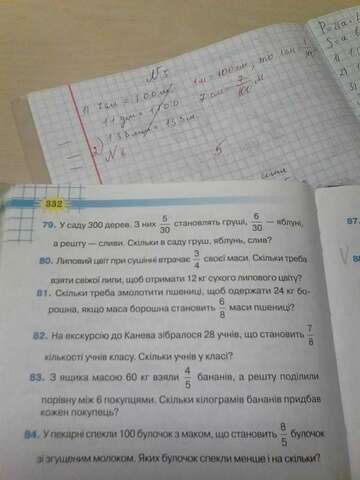 N 5
1) 7 см =
1 м = 100 см, то 1 см = 1/100
7 см = 7/100 м
2)
332
79. У саду 300 дерев. З них 5/30 становлять груші, 6/30 — яблуні,
а решту — сливи. Скільки в саду груш, яблунь, слив?
80. Липовий цвіт при сушінні втрачає 3/4 своєї маси. Скільки треба
взяти свіжої липи, щоб отримати 12 кг сухого липового цвіту?
81. Скільки треба змолотити пшениці, щоб одержати 24 кг бо-
рошна, якщо маса борошна становить 6/8 маси пшениці?
82. На екскурсію до Канева зібралося 28 учнів, що становить 7/8
кількості учнів класу. Скільки учнів у класі?
83. З ящика масою 60 кг взяли 4/5 бананів, а решту поділили
порівну між 6 покупцями. Скільки кілограмів бананів придбав
кожен покупець?
84. У пекарні спекли 100 булочок з маком, що становить 8/5 булочок
зі згущеним молоком. Яких булочок спекли менше і на скільки?
87.